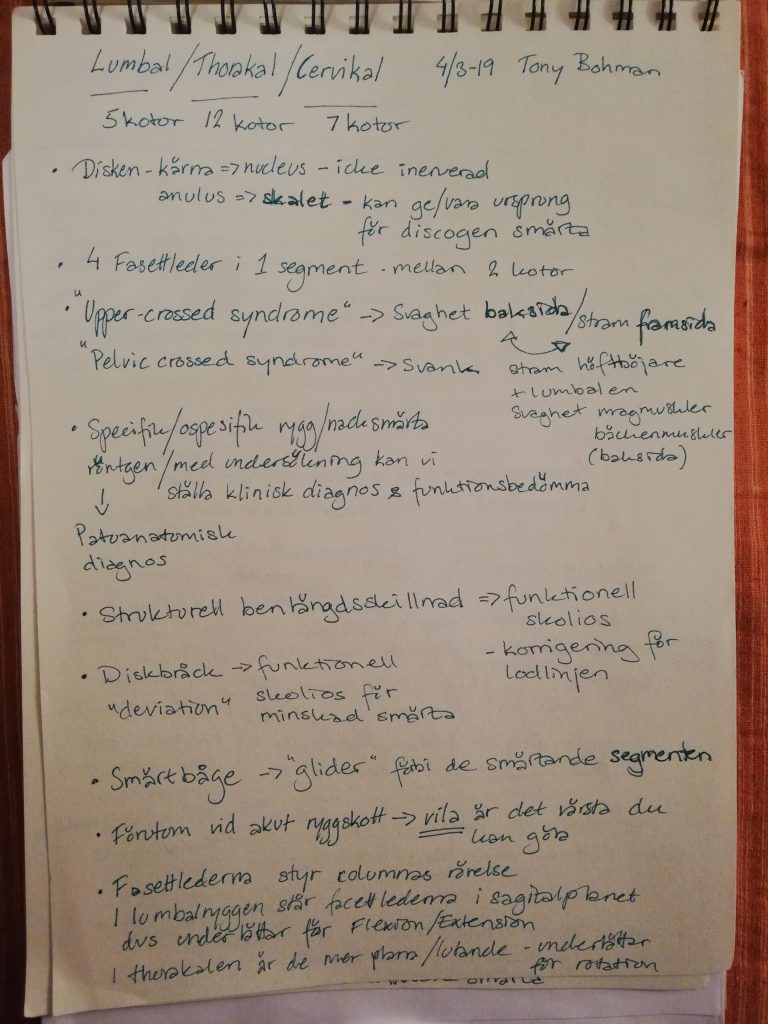 Lumbal/Thorakal/Cervikal 4/3-19 Tony Bohman
5 kotor 12 kotor 7 kotor
• Disken - kärna => nucleus - icke inerverad
anulus => skalet - kan ge/vara ursprong
för discogen smärta
• 4 Fasettleder i 1 segment - mellan 2 kotor
• "Upper-crossed syndrome" -> Svaghet baksida/stram framsida
"Pelvic crossed syndrome" -> Svank stram höftböjare
+ lumbalen
Svaghet magmuskler
bäckenmuskler
(baksida)
• Specifik/ospesifik rygg/nacksmärta
röntgen/med undersökning kan vi
ställa klinisk diagnos & funktionsbedömma
↓
Patoanatomisk
diagnos
• Strukturell benlängdsskillnad => funktionell
skolios
- korrigering för
lodlinjen
• Diskbråck -> funktionell
"deviation" skolios för
minskad smärta
• Smärtbåge -> "glider" förbi de smärtande segmenten
• Förutom vid akut ryggskott -> vila är det värsta du
kan göra
• Fasettlederna styr columnas rörelse
I lumbalryggen står facettlederna i sagitalplanet
dvs underlättar för Flexion/Extension
I thorakalen är de mer plana/lutande - underlättar
för rotation